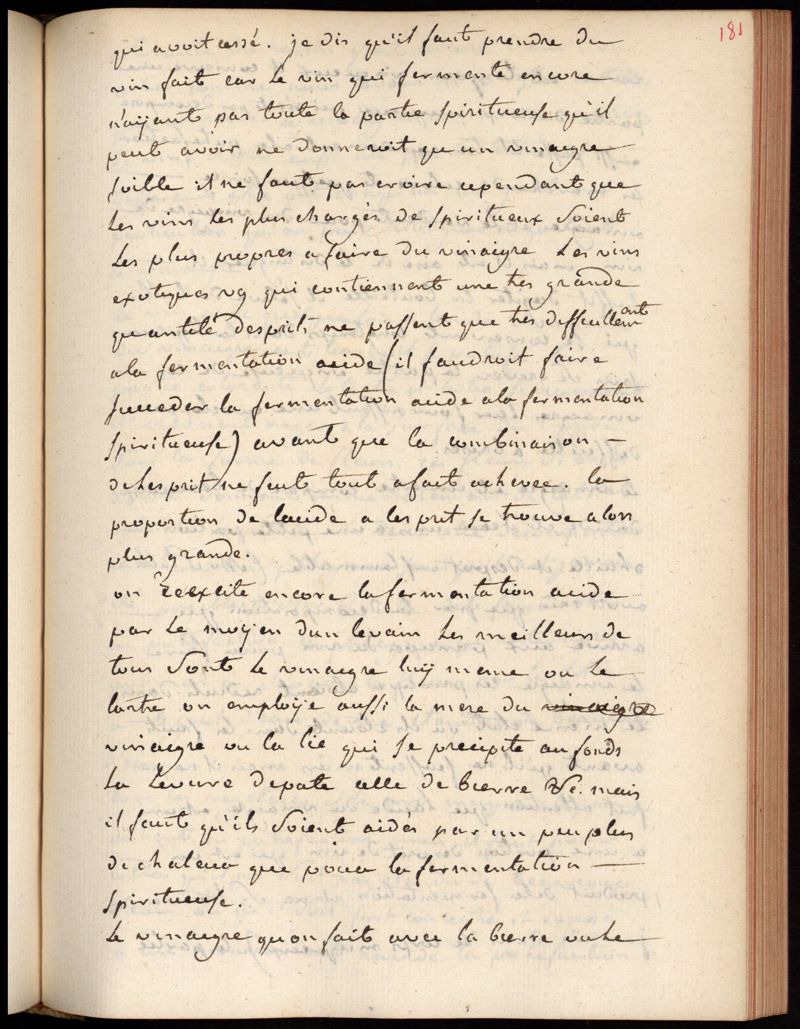 181
qui avoit cessé. je dis qu'il faut prendre du
vin fait car le vin qui fermente encore
n'aÿant pas toute la partie spiritueuse qu'il
peut avoir ne donneroit qu'un vinaigre
foible il ne faut pas croire cependant que
les vins les plus chargés de spiritueux soient
les plus propres a faire du vinaigre les vins
exotiques vg qui contiennent une tres grande
quantité desprit ne passent que tres difficillement
a la fermentation acide (il faudroit faire
succeder la fermentation acide a la fermentation
spiritueuse) avant que la combinaison —
de lesprit ne feut tout a fait achevee. la
proportion de lacide a lesprit se trouve alors
plus grande.
on excite encore la fermentation acide
par le moÿen dun levain les meilleurs de
tous sont le vinaigre luÿ meme ou le
tartre on emploÿe aussi la mere du vinaigre
vinaigre ou la lie qui se precipite au fonds
la levure de pate celle de bierre &c. mais
il faut qu'ils soient aidés par un peu plus
de chaleur que pour la fermentation —
spiritueuse.
le vinaigre quon fait avec la bierre vale